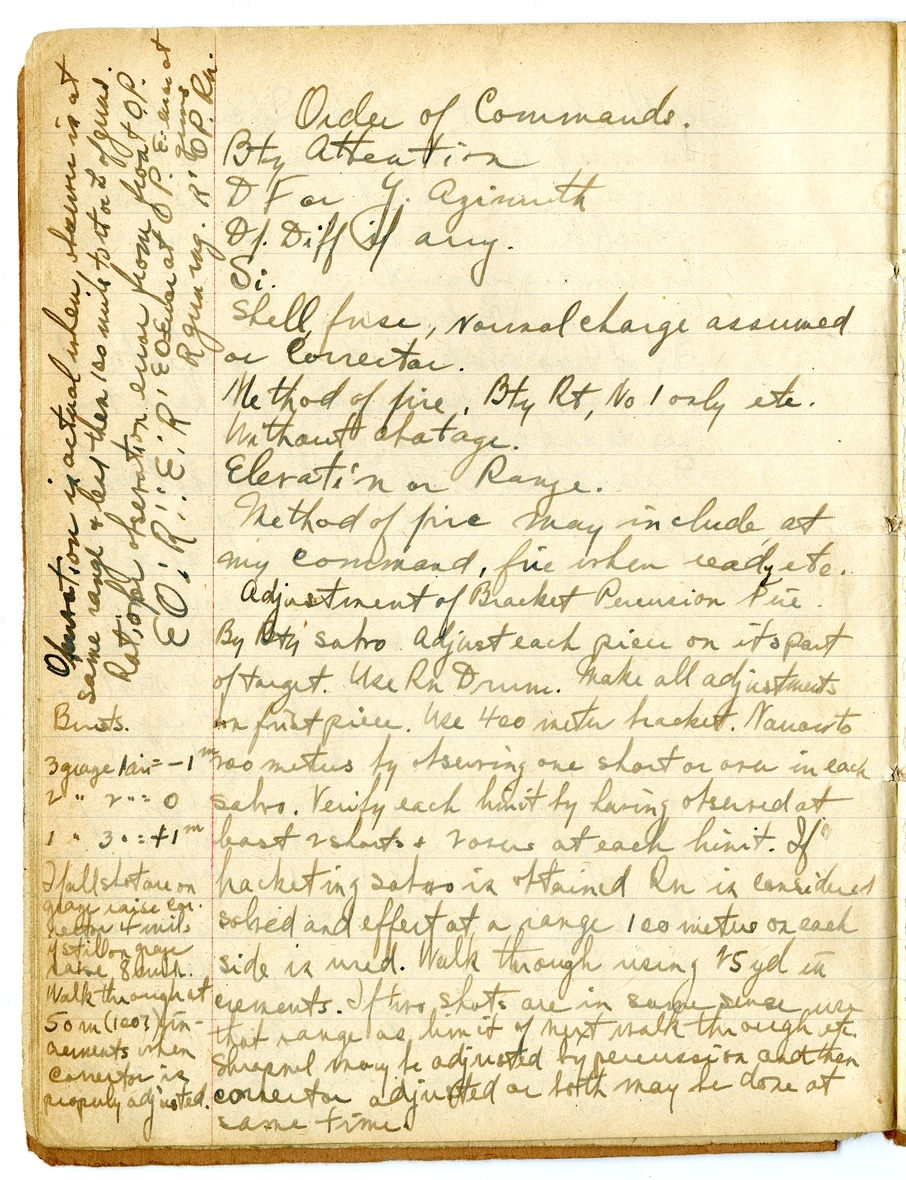 Order of Commands.
Bty Attention
D F or Y. Azimuth
Df. Diff if any.
Si.
Shell, fuse, normal charge assumed
or Corrector.
Method of fire, Bty Rt, No 1 only etc.
Without abatage.
Elevation or Range.
Method of fire may include at
my command, fire when ready etc.
Adjustment of Bracket Percusion Fire.
By Bty salvo Adjust each piece on its part
of target. Use Rn Drum. Make all adjustments
on first piece. Use 400 meter bracket. Narrow to
200 meters by observing one short or over in each
salvo. Verify each limit by having observed at
least 2 shorts & 2 overs at each limit. If
bracketing salvo is obtained Rn is considered
solved and effect at a range 100 meters on each
side is used. Walk through using 25 yd in
crements. If two shots are in same sense use
that range as limit of next walk through etc.
Shrapnel may be adjusted by percussion and then
corrector adjusted or both may be done at
same time.
Observation is actual when observer is at
same range & less then 100 mils to rt or L of guns.
Ratio of observation error from gun & OP.
EO:R::E:R' EO Error at OP. E. error at
guns
R gun rng. R' OP. Rn.
Bursts.
3 graze 1 air = -1m
2 " 2 " = 0
1 " 3 " = +1m
If all shot are on
graze raise cor-
rector 4 mils
if still on graze
raise 8 mils.
Walk through at
50 m (100?) in-
crements when
corrector is
properly adjusted.